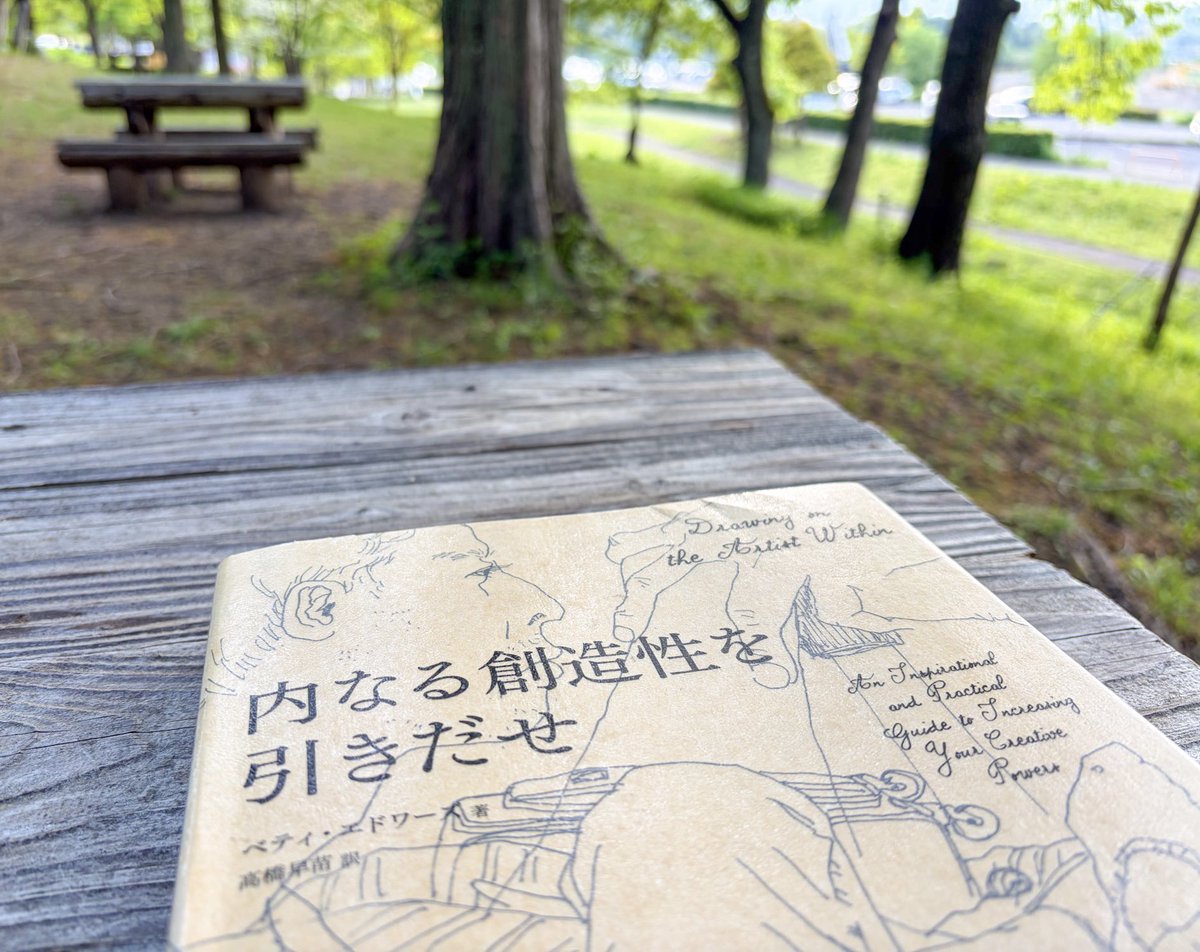 Drawing on
the Artist Within
内なる創造性を
引きだせ
An Inspirational
and Practical
Guide to Increasing
Your Creative
Powers
ベティ・エドワーズ 著
高橋早苗 訳